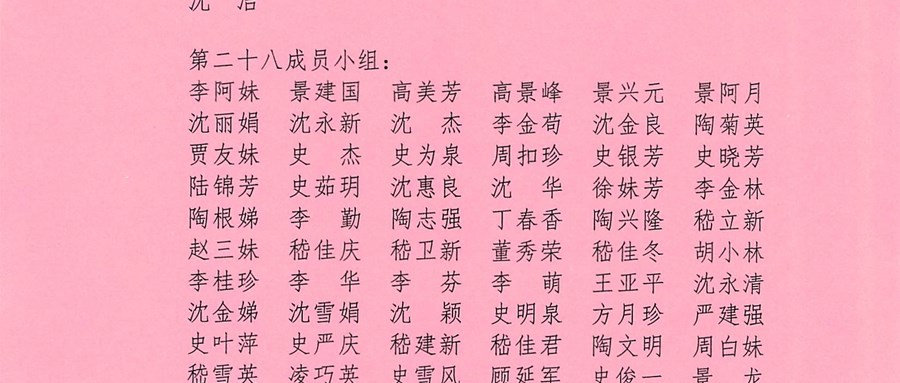 沈 洁
第二十八成员小组：
李阿妹 景建国 高美芳 高景峰 景兴元 景阿月
沈丽娟 沈永新 沈 杰 李金苟 沈金良 陶菊英
贾友妹 史 杰 史为泉 周扣珍 史银芳 史晓芳
陆锦芳 史茹玥 沈惠良 沈 华 徐妹芳 李金林
陶根娣 李 勤 陶志强 丁春香 陶兴隆 嵇立新
赵三妹 嵇佳庆 嵇卫新 董秀荣 嵇佳冬 胡小林
李桂珍 李 华 李 芬 李 萌 王亚平 沈永清
沈金娣 沈雪娟 沈 颖 史明泉 方月珍 严建强
史叶萍 史严庆 嵇建新 嵇佳君 陶文明 周白妹
嵇雪英 凌巧英 史雪风 顾延军 史俊一 景 龙